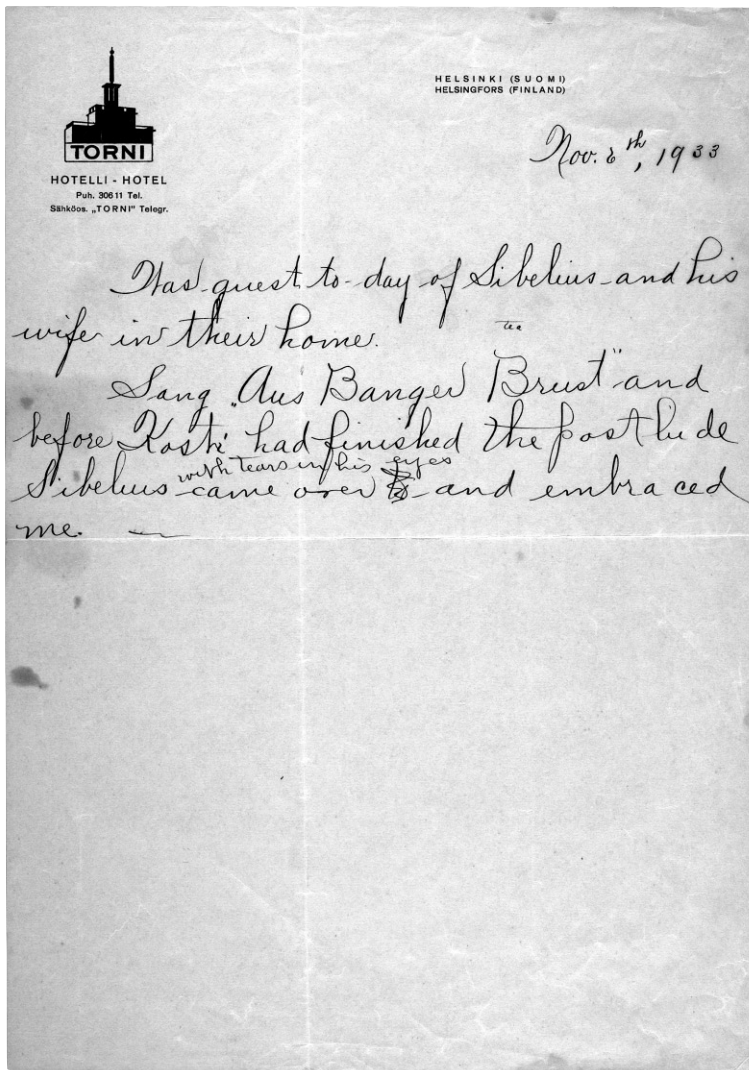 TORNI
HOTELLI - HOTEL
Puh. 306 11 Tel.
Sähköos. „TORNI" Telegr.
HELSINKI (SUOMI)
HELSINGFORS (FINLAND)
Nov. 8th, 1933
Was guest to-day of Sibelius and his
wife in their home.
Sang „Aus Banger Brust" and
before Kosti had finished the postlude
with tears in his eyes
Sibelius came over and embraced
me.